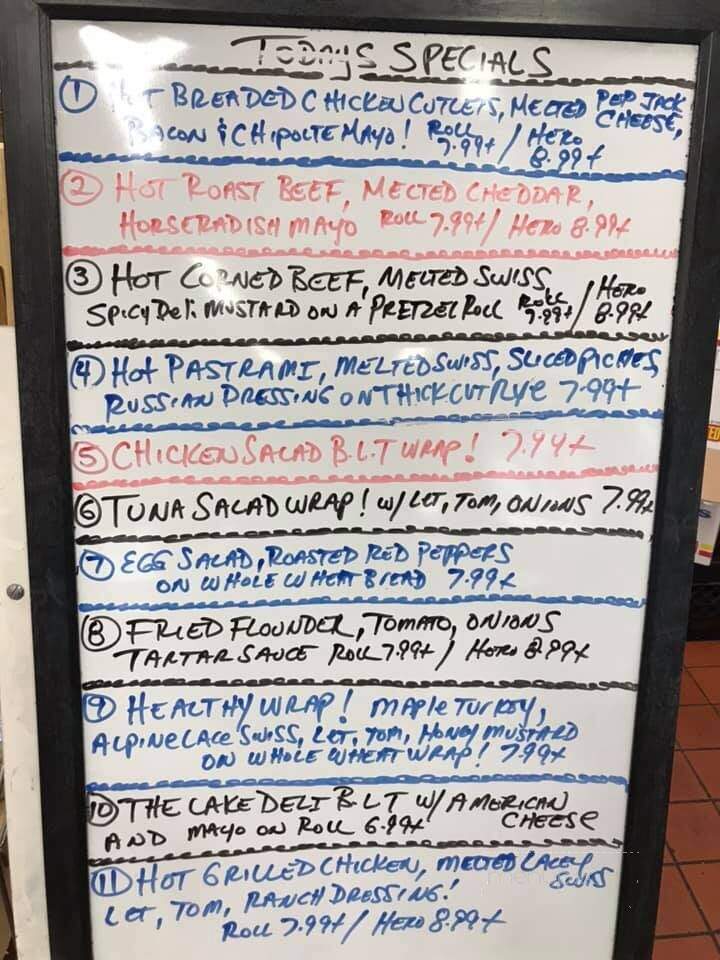 TODAYS SPECIALS
① HOT BREADED CHICKEN CUTLETS, MELTED PEP JACK CHEESE,
BACON & CHIPOLTE MAYO! ROLL 7.99+ / HERO 8.99+
② HOT ROAST BEEF, MELTED CHEDDAR,
HORSERADISH MAYO ROLL 7.99+ / HERO 8.99+
③ HOT CORNED BEEF, MELTED SWISS,
SPICY DELI MUSTARD ON A PRETZEL ROLL ROLL 7.99+ / HERO 8.99+
④ HOT PASTRAMI, MELTED SWISS, SLICED PICKLES,
RUSSIAN DRESSING ON THICK CUT RYE 7.99+
⑤ CHICKEN SALAD B.L.T WRAP! 7.99+
⑥ TUNA SALAD WRAP! W/ LET, TOM, ONIONS 7.99+
⑦ EGG SALAD, ROASTED RED PEPPERS
ON WHOLE WHEAT BREAD 7.99+
⑧ FRIED FLOUNDER, TOMATO, ONIONS
TARTAR SAUCE ROLL 7.99+ / HERO 8.99+
⑨ HEALTHY WRAP! MAPLE TURKEY,
ALPINE LACE SWISS, LET, TOM, HONEY MUSTARD
ON WHOLE WHEAT WRAP! 7.99+
⑩ THE LAKE DELI B.L.T W/ AMERICAN CHEESE
AND MAYO ON ROLL 6.99+
⑪ HOT GRILLED CHICKEN, MELTED LACEY SWISS
LET, TOM, RANCH DRESSING!
ROLL 7.99+ / HERO 8.99+